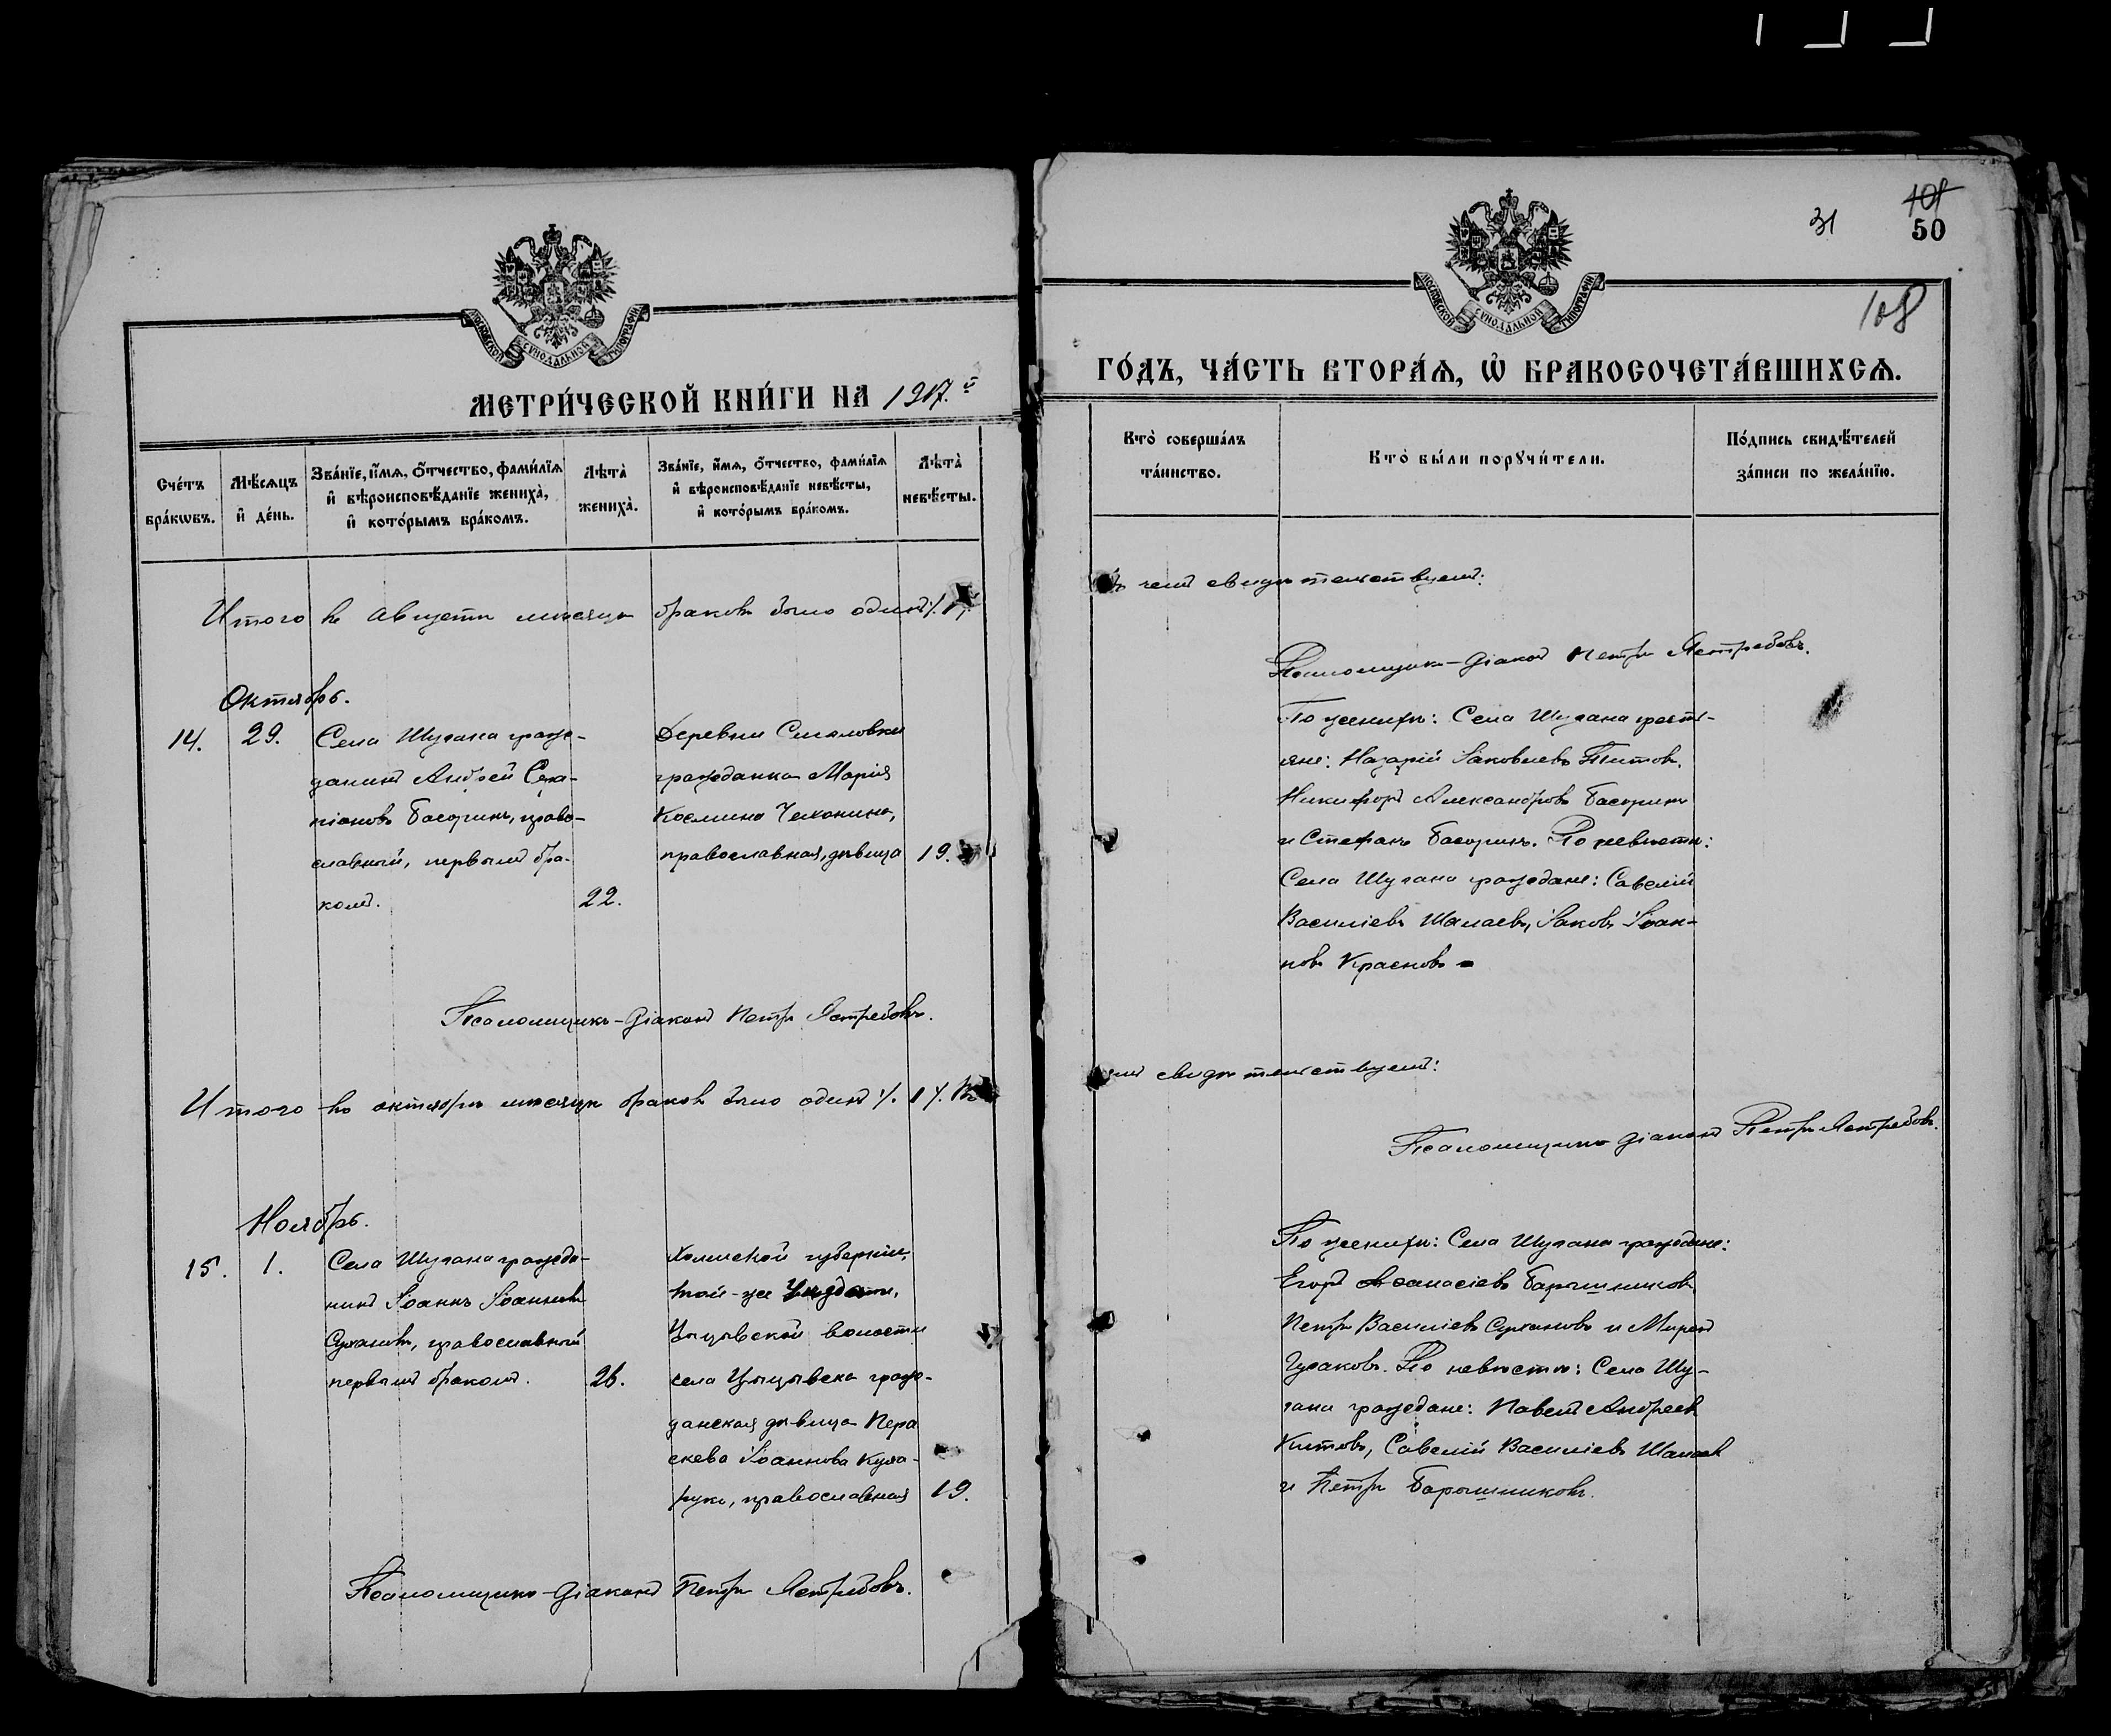 МОСКОВСКОЙ СѴНОДАЛЬНОЙ ТИПОГРАФІИ
МЕТРИ́ЧЕСКОЙ КНИ́ГИ НА 1917.й
Сче́тъ бра́кѡвъ.
Мѣ́сѧцъ и҆ де́нь.
Зва́нїе, и҆́мѧ, ѻ҆́тчество, фами́лїѧ и҆ вѣроисповѣ́данїе жениха̀, и҆ кото́рымъ бра́комъ.
Лѣта̀ жениха̀.
Зва́нїе, и҆́мѧ, ѻ҆́тчество, фами́лїѧ и҆ вѣроисповѣ́данїе невѣ́сты, и҆ кото́рымъ бра́комъ.
Лѣта̀ невѣ́сты.
Итого въ августѣ мѣсяцѣ браковъ было одинъ /. 1 /.
Октябрь.
14. 29.
Села Шугана граж-
данинъ Андрей
Басыринъ, право-
славный, первымъ бра-
комъ. 22.
Деревни
гражданка Марія
Космина
православная, дѣвица 19.
Псаломщикъ-діаконъ Петръ Ястребовъ.
Итого въ октябрѣ мѣсяцѣ браковъ было одинъ /. 1 /. Въ
Ноябрь.
15. 1.
Села Шугана гражда-
нинъ Іоаннъ Іоанновъ
Сухановъ, православный
первымъ бракомъ. 26.
Холмской губерніи,
той-же
волости
села граж-
данская дѣвица Пера
скева Іоаннова
православная 19.
Псаломщикъ-діаконъ Петръ Ястребовъ.
МОСКОВСКОЙ СѴНОДАЛЬНОЙ ТИПОГРАФІИ
31
101
50
108
ГО́ДЪ, ЧА́СТЬ ВТОРА́Ѧ, Ѡ҆ БРАКОСОЧЕТА́ВШИХСѦ.
Кто̀ соверша́лъ та́инство.
Кто̀ бы́ли порꙋчи́тели.
По́дпись свидѣ́телей за́писи по жела́нїю.
чемъ свидѣтельствуемъ:
Псаломщикъ-діаконъ Петръ Ястребовъ.
По женихѣ: Села Шугана крестъ-
яне: Назарій Іаковлевъ Титовъ,
Никифоръ Александровъ Басыринъ
и Стефанъ Басыринъ. По невѣстѣ:
Села Шугана граждане: Савелій
Василіевъ Шалаевъ, Іаковъ Іоан-
новъ Красновъ
чемъ свидѣтельствуемъ:
Псаломщикъ діаконъ Петръ Ястребовъ.
По женихѣ: Села Шугана граждане:
Егоръ Аѳанасіевъ Барышниковъ
Петръ Василіевъ Сухановъ и Миронъ
Гусаковъ. По невѣстѣ: Села Шу-
гана граждане: Павелъ Андреевъ
Китовъ, Савелій Василіевъ Шалаевъ
и Петръ Барышниковъ.